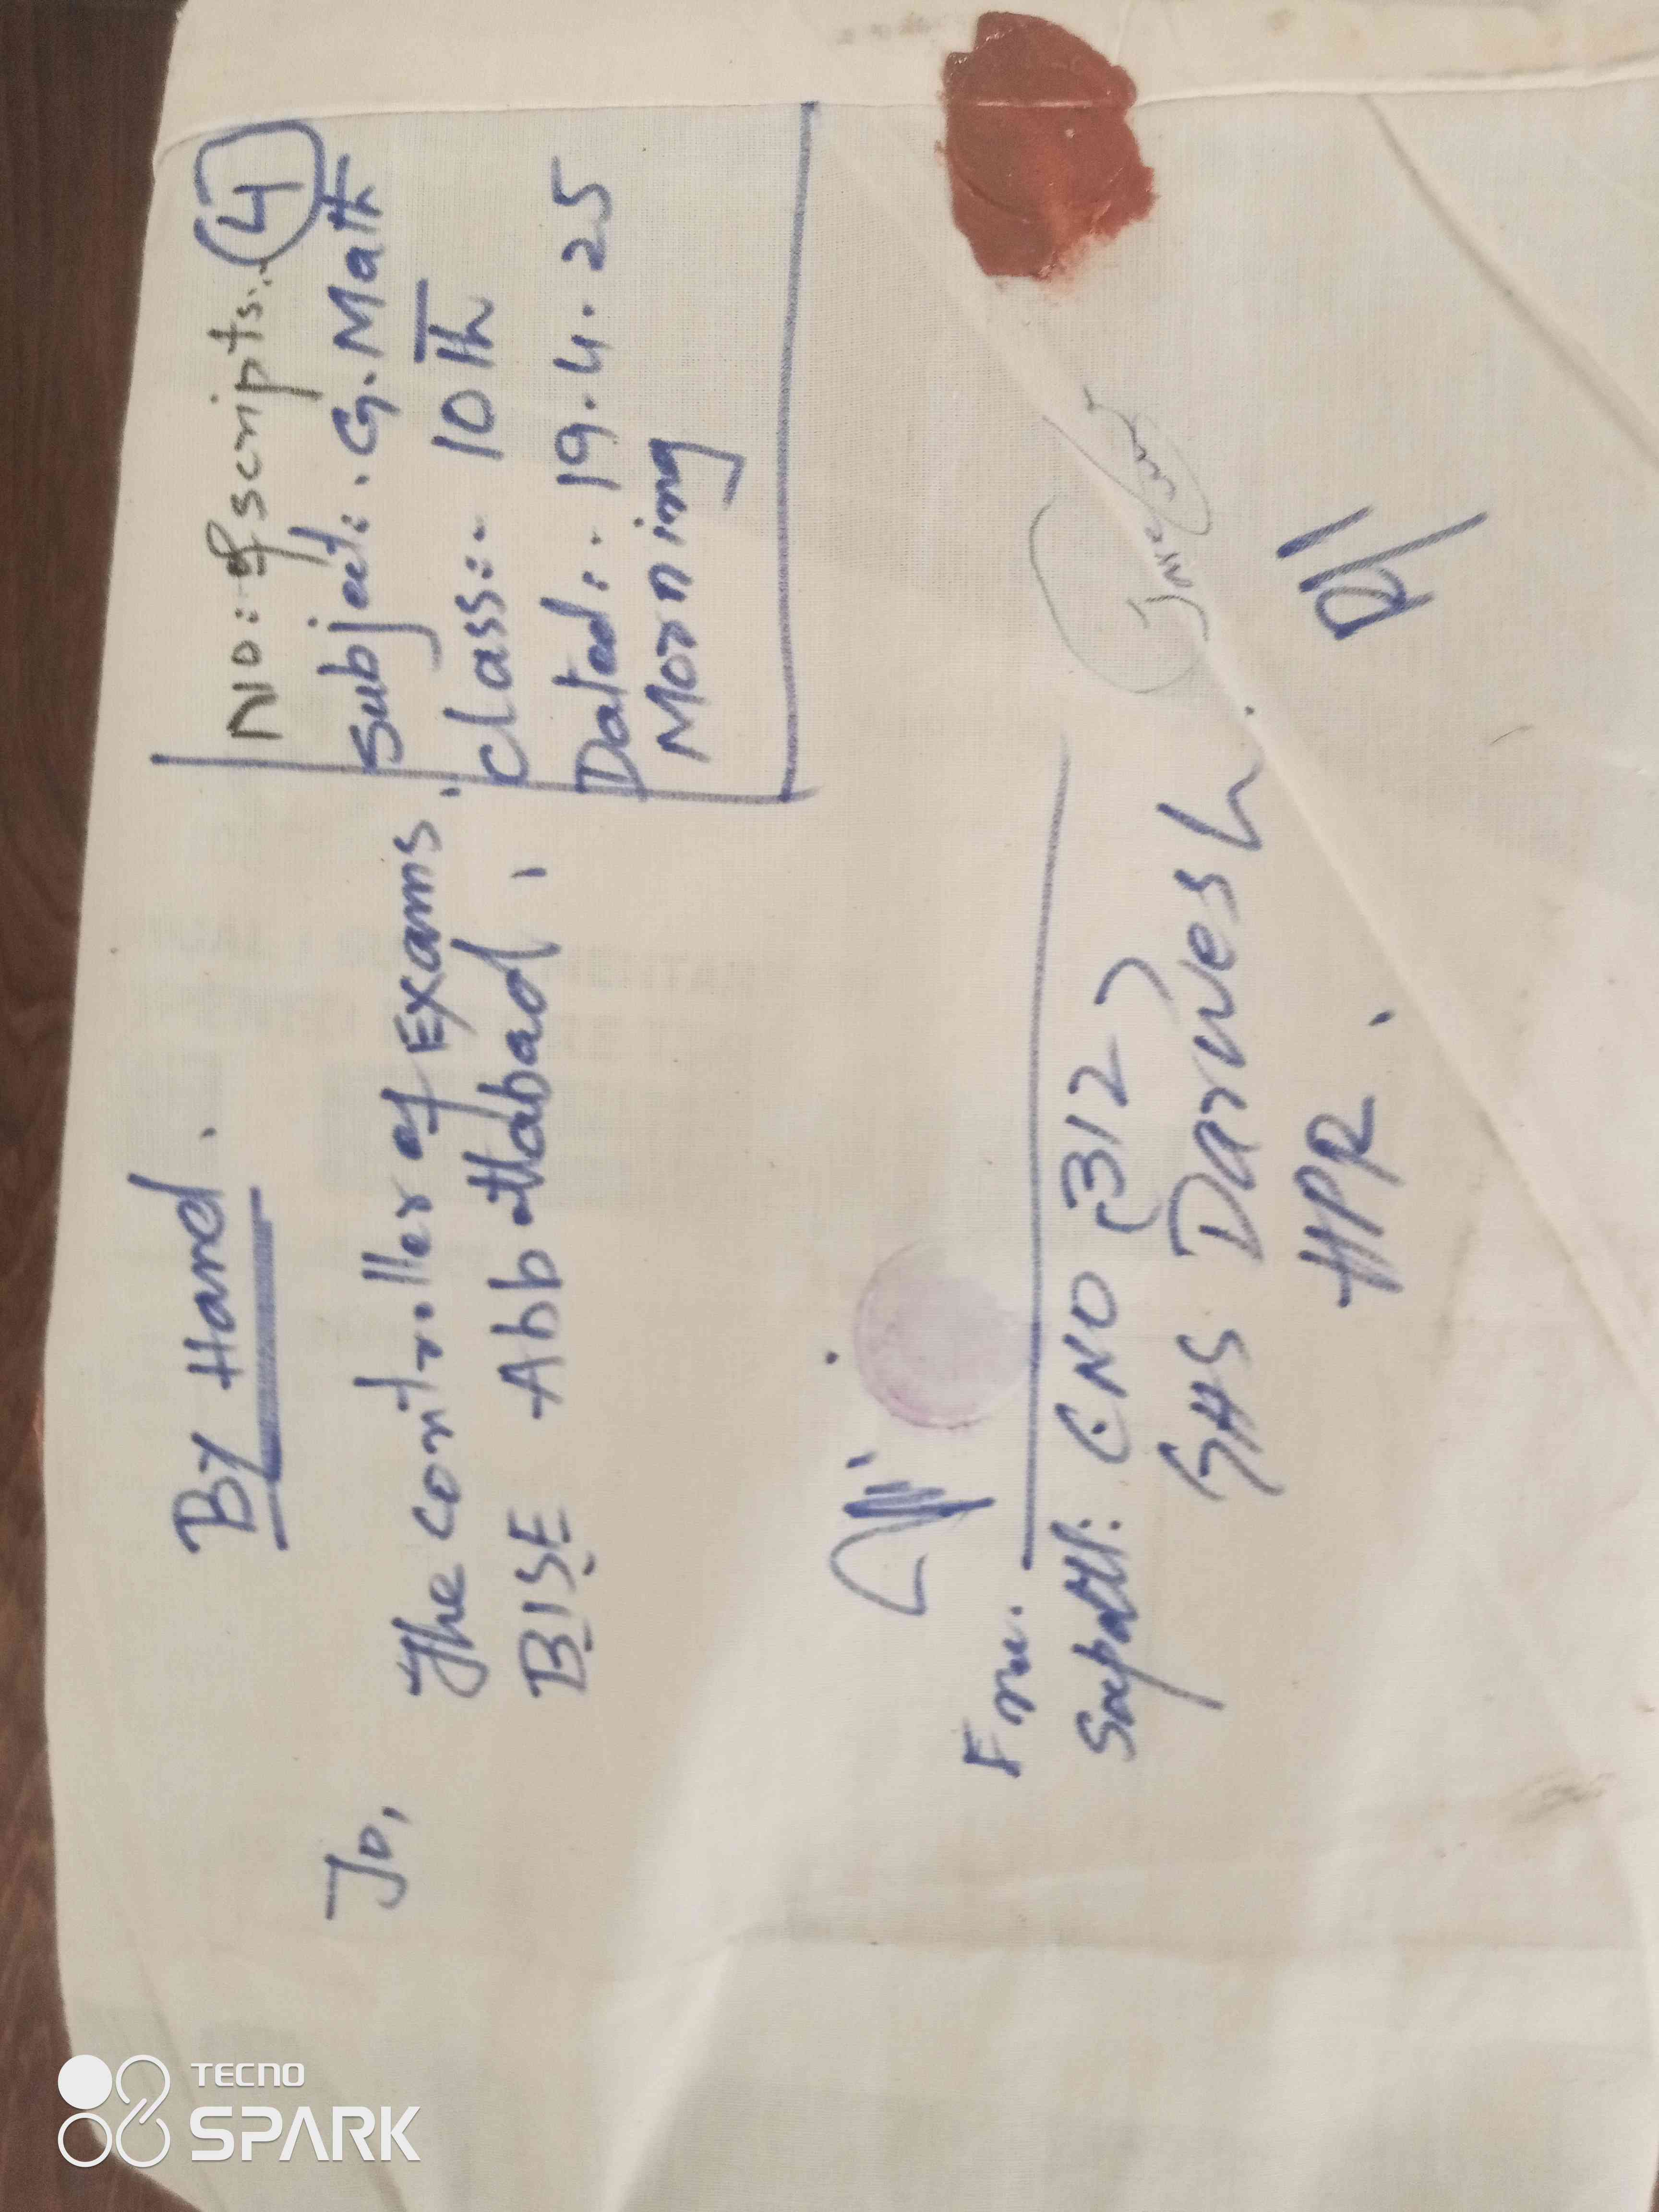 By Hand.
No: of scripts:. 4
Subject:. G. Math
Class:. 10th
Dated:. 19.4.25
Morning
To,
The Controller of Exams.
BISE Abbottabad,
From.
Supdtt: C.NO (312)
GHS Darwesh
HPR.
TECNO
SPARK